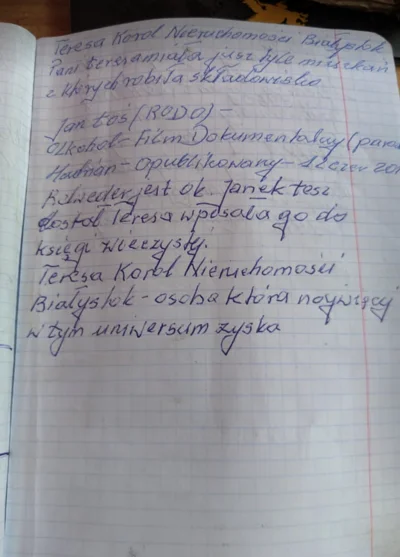 Teresa Korol Nieruchomości Białystok
Pani teresa miała już tyle mieszkań
z których robiła składowisko
Jan toś (RODO) -
alkohol - Film Dokumentalny (para
- opublikowany - 12 czer 201
Rolweder jest ok. Janek też
dostał Teresa wpisała go do
księgi wieczystej.
Teresa Korol Nieruchomości
Białystok - osoba która najwięcej
w tym uniwersum zyska